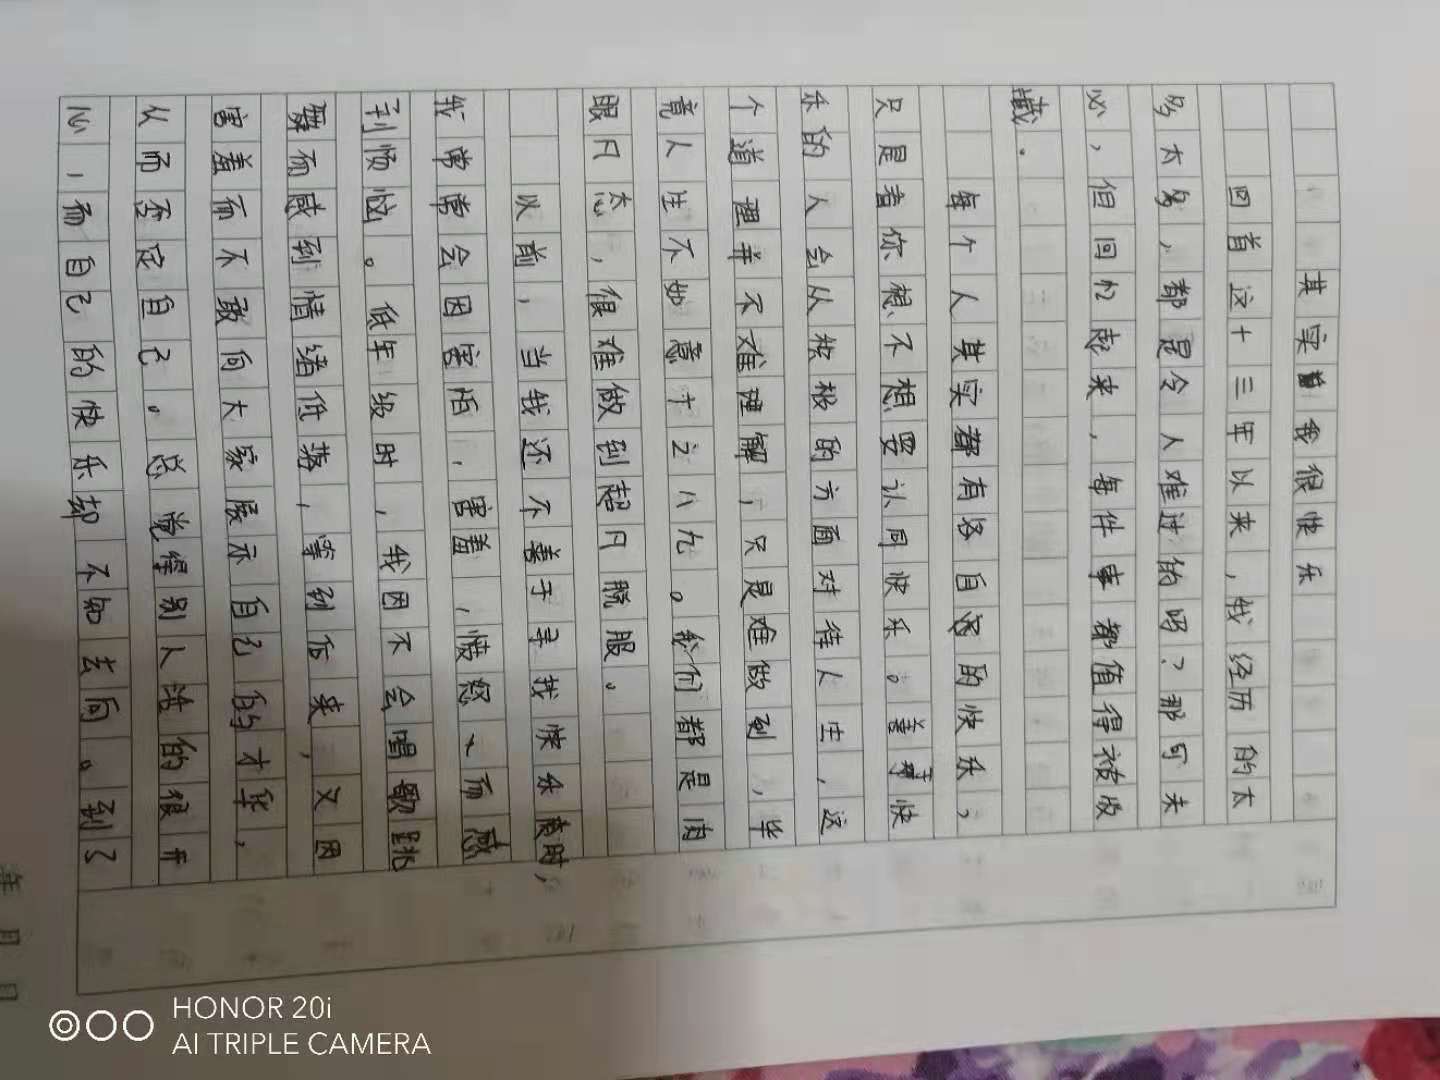 其实我很快乐
回首这十三年以来，我经历的太
多太多，都是令人难过的吗？那可未
必，但回忆起来，每件事都值得被收
藏．
每个人其实都有各自的快乐，
只是看你想不想要认同快乐。善于快
乐的人会从积极的方面对待人生，这
个道理并不难理解，只是难做到，毕
竟人生不如意十之八九。我们都是肉
眼凡态，很难做到超凡脱服。
以前，当我还不善于寻找快乐商时，
我常常会因害怕，害羞，愤怒、而感
到烦恼。低年级时，我因不会唱歌跳
舞而感到情绪低落，等到后来，又因
害羞而不敢向大家展示自己的才华，
从而否定自己。总觉得别人活的很开
心，而自己的快乐却不知去向。到了
年 月 日
HONOR 20i
AI TRIPLE CAMERA